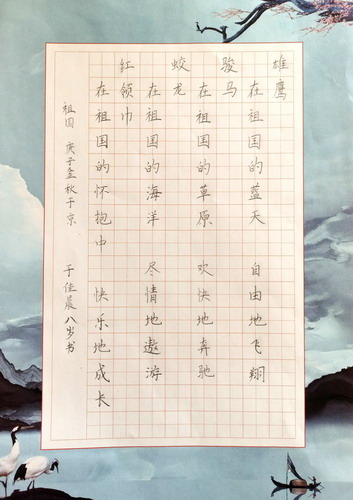 雄鹰
在祖国的蓝天 自由地飞翔
骏马
在祖国的草原 欢快地奔驰
蛟龙
在祖国的海洋 尽情地遨游
红领巾
在祖国的怀抱中 快乐地成长
祖国 庚子金秋于京 于佳晨八岁书